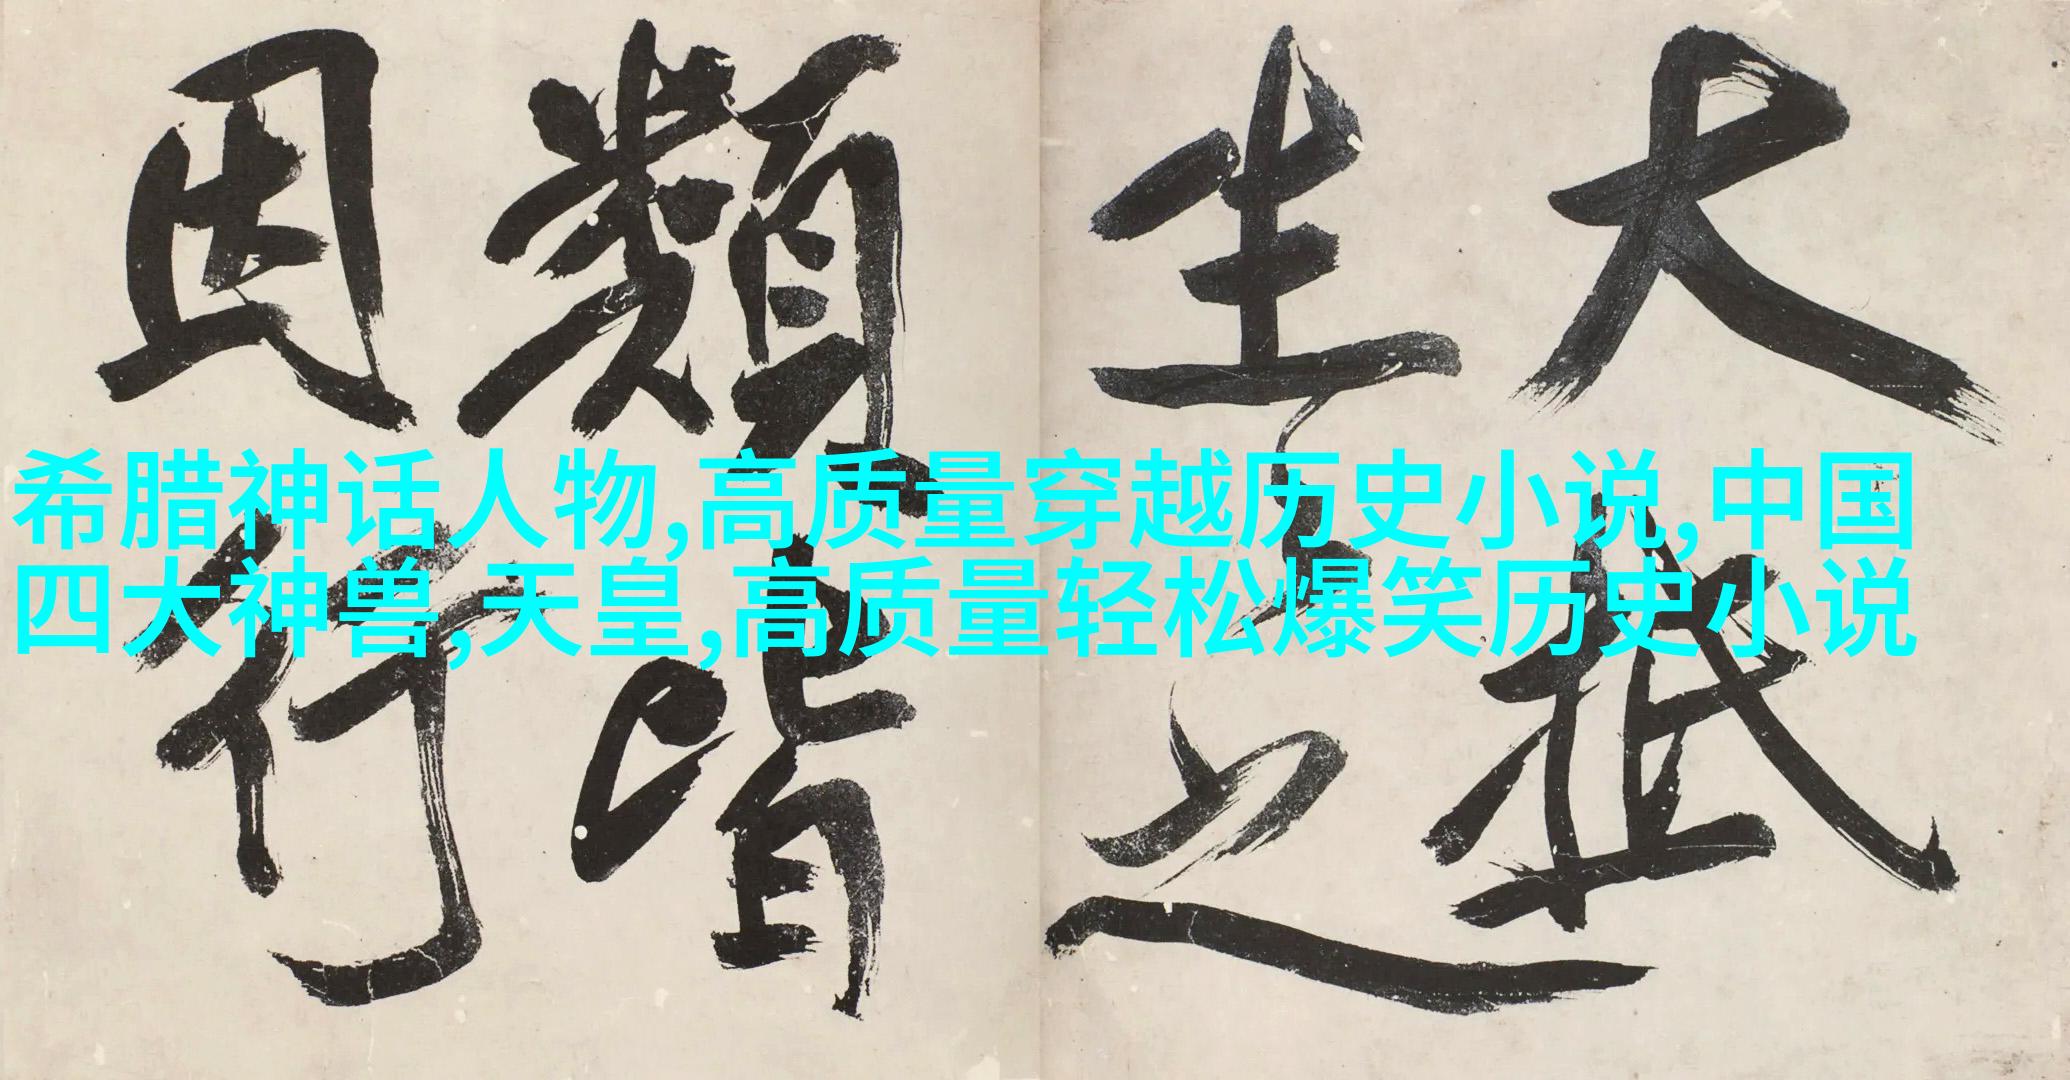 大抵
生之
類皆
因行
希腊神话人物,高质量穿越历史小说,中国
四大神兽,天皇,高质量轻松爆笑历史小说